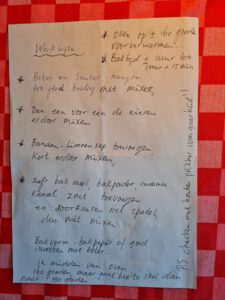 Werkwijze
* Oven op ± 160 graden
voorverwarmen
* Baktijd ± 1 uur tot
1 uur + 15 min
* Boter en suiker mengen
tot glad beslag met mixer,
* Dan een voor een de eieren
erdoor mixen
* Banaan - limoensap toevoegen
kort erdoor mixen,
* Zelfr. bak meel, bakpoeder,
kaneel zout toevoegen
en doorkoeren met spatel,
dan met mixer,
Bakvorm - bakpapier of goed
invetten met boter
in midden van oven
160 graden, maar
naar 150 graden
P.S. checken met houten prikker